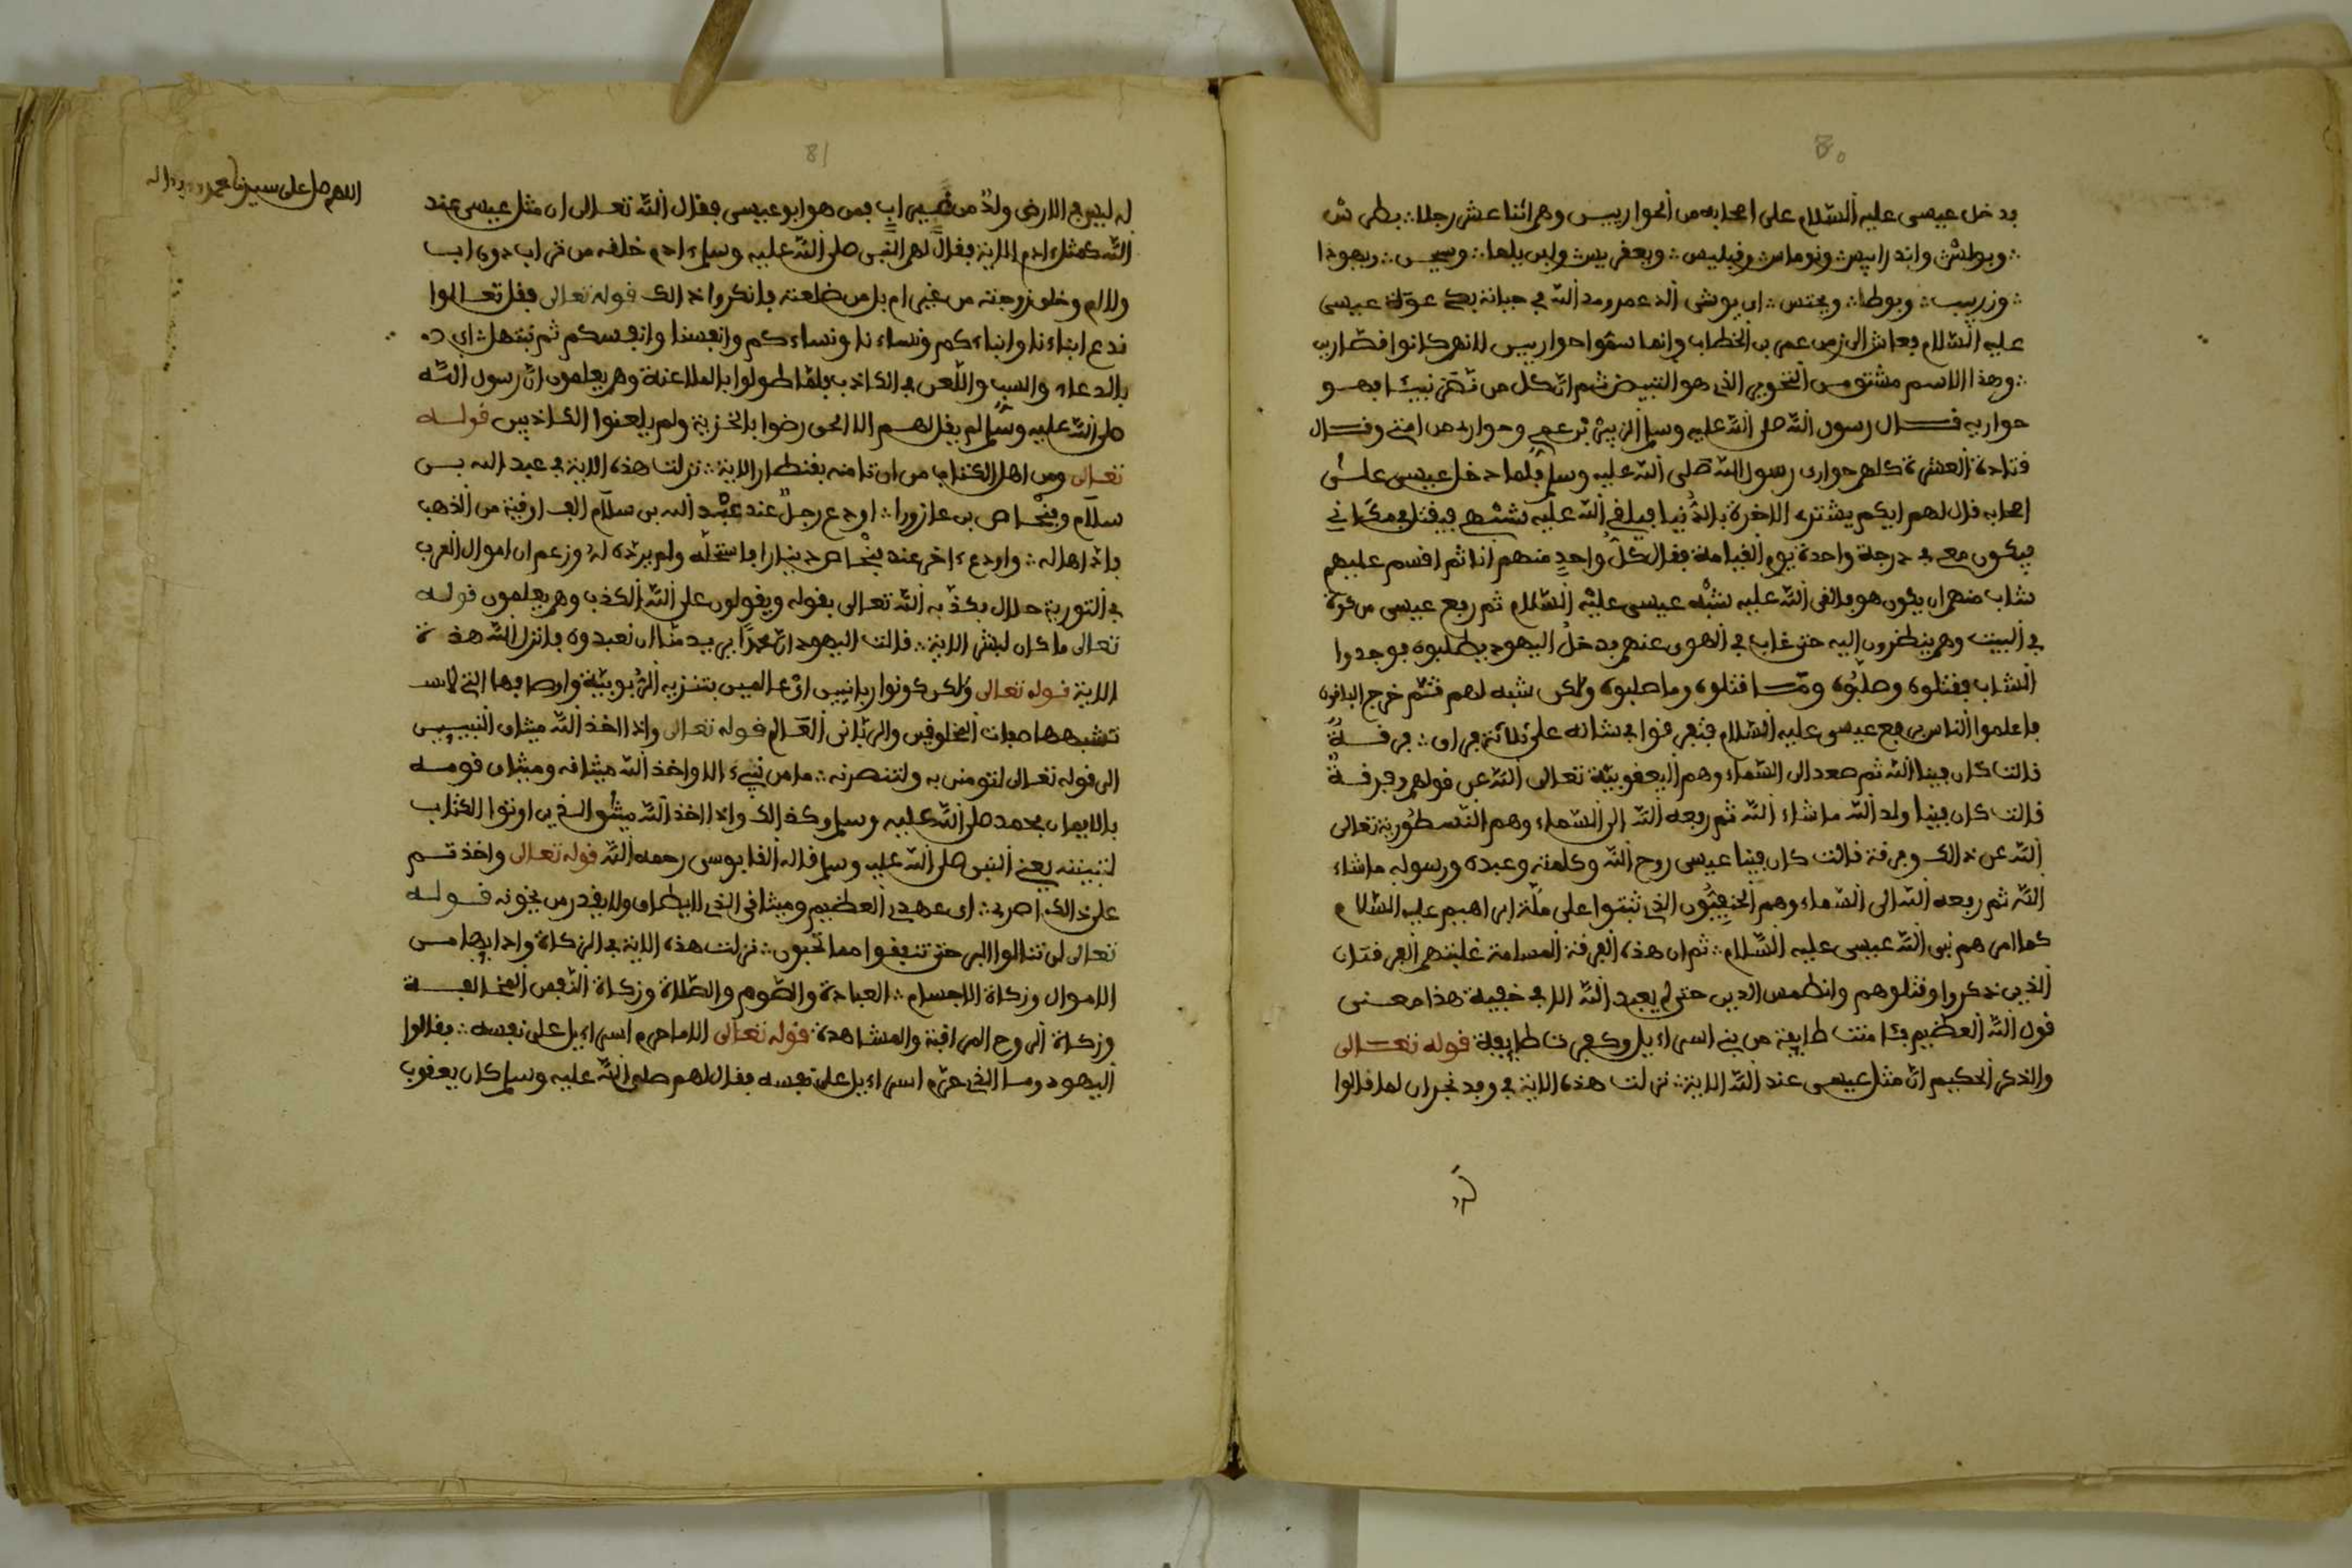 80
فدخل عيسى عليه السّلام على اصحابه من الحواريين وهم اثنا عشر رجلا ∴ بطرس
∴ وبولش واندراييس ونوماس وفيليس ∴ ويعقريس وابن يلما ∴ وسيمس ∴ ويهوذا
عليه السّلام فعاش الى زمن عمر بن الخطاب وانما سمّوا حواريين لانهم كانوا قصّارين
∴ وهذا الاسم مشتق من التحوير الذي هو التبييض ثم انّ كلّ من نصر نبيّا فهو
حواريه قال رسول اللّه صلى اللّه عليه وسلم الزبير بن عمي وحواري من امتي وقال
قتادة العشرة كلهم حواري رسول اللّه صلى اللّه عليه وسلم فلما دخل عيسى على
اصحابه قال لهم ايكم يشتري الاخرة بالدّنيا فيلقي اللّه عليه شبهي فيقتل في مكاني
فيكون معي في درجة واحدة يوم القيامة فقال كلّ واحد منهم انا ثم اقسم عليهم
شاب منهم ان يكون هو فالقى اللّه عليه شبْه عيسى عليه السّلام ثم رفع عيسى من كوة
في البيت وهم ينظرون اليه حتى غاب في الهوى عنهم فدخل اليهود يطلبوه فوجدوا
الشاب فقتلوه وصلبُوه وما قتلوه وما صلبوه ولكن شبه لهم ثم خرج الباقون
فاعلموا الناس برفع عيسى عليه السّلام فتفرقوا في شانه على ثلاثة فراق ∴ فرقة
قالت كان فينا اللّه ثم صعد الى السّماء وهم اليعقوبيّة تعالى اللّه عن قولهم وفرقة
قالت كان فينا ولد اللّه ما شاء اللّه ثم رفعه اللّه الى السّماء وهم النّسطُورية تعالى
اللّه عن ذالك وفرقة قالت كان فينا عيسى روح اللّه وكلمته وعبده ورسوله ما شاء
اللّه ثم رفعه اللّه الى السّماء وهم الحنيفيّون الذي ثبتوا على ملّة ابراهيم عليه السّلام
كما امرهم نبي اللّه عيسى عليه السّلام ∴ ثم ان هذه الفرقة المسلمة غلبتهم الفرقتان
الذين ذكروا وقتلوهم وانطمس الدين حتى لم يعبد اللّه الا في خفية هذا معنى
قول اللّه العظيم فئامنت طايفة من بني اسراءيل وكفرت طايفة قوله تعالى
والذكر الحكيم انّ مثل عيسى عند اللّه الاية ∴ نزلت هذه الاية في وفد نجران لما قالوا
له
81
اللهم صل على سيدنا محمد
له ليس في الارض ولدٌ من غير اب فمن هو ابو عيسى فقال اللّه تعالى ان مثل عيسى عند
اللّه كمثل ءادم الاية فقال لهم النبي صلى اللّه عليه وسلم ءادم خلقه من تراب دون اب
ولا ام وخلق زوجته من غير ام بل من ضلعه فانكروا ذالك قوله تعالى فقل تعالوا
ندع ابناءنا وابناءكم ونساءنا ونساءكم وانفسنا وانفسكم ثم نبتهل ∴ اي
بالدعاء والسب واللّعن في الكاذب فلمّا طولوا بالملاعنة وهم يعلمون انّ رسول اللّه
صلى اللّه عليه وسلم لم يقل لهم الا الحق رضوا بالجزية ولم يلعنوا الكاذبين قوله
تعالى ومن اهل الكتاب من ان تامنه بقنطار الاية ∴ نزلت هذه الاية في عبد الله بن
سلام وفنْحاص بن عازورا ∴ اودع رجلٌ عند عبْد الله بن سلام الف اوقية من الذهب
فادّاها له ∴ واودع ءاخر عند فنْحاص دينارا فاستحلّه ولم يردّه له وزعم ان اموال العرب
في التورية حلال فكذّبه اللّه تعالى بقوله ويقولون على اللّه الكذب وهم يعلمون قوله
تعالى ما كان لبشر الاية ∴ قالت اليهود انّ محمدًا يريد منّا ان نعبدوه فانزل اللّه هذه
الاية قوله تعالى ولكن كونوا ربانيين ايْ عالمين بتنزيه الرّبوبيّة واوصافها التي لا
تشبهها صفات المخلوقين والربّاني العالم قوله تعالى واذ اخذ اللّه ميثاق النبيين
الى قوله تعالى لتومنن به ولتنصرنه ∴ ما من نبيء الا واخذ اللّه ميثاقه وميثاق قومه
بالايمان بمحمد صلى اللّه عليه وسلم وكذالك واذ اخذ اللّه ميثٰق الذين اوتوا الكتاب
لتبيننه يعني النبي صلى اللّه عليه وسلم قاله القابوسي رحمه اللّه قوله تعالى واخذتم
على ذالكم اصري ∴ اي عهدي العظيم وميثاقي الذي لا يطاق ولا يقدر من يخونه قوله
تعالى لن تنالوا البر حتى تنفقوا مما تحبون ∴ نزلت هذه الاية في الزكاة وادايها من
الاموال وزكاة الاجسام ∴ العبادة والصّوم والصّلاة وزكاة النّفس المخالفة
وزكاة الروح المراقبة والمشاهدة قوله تعالى الا ما حرم اسراءيل على نفسه ∴ فقالوا
اليهود وما الذي حرّم اسراءيل على نفسه فقال لهم صلى اللّه عليه وسلم كان يعقوب